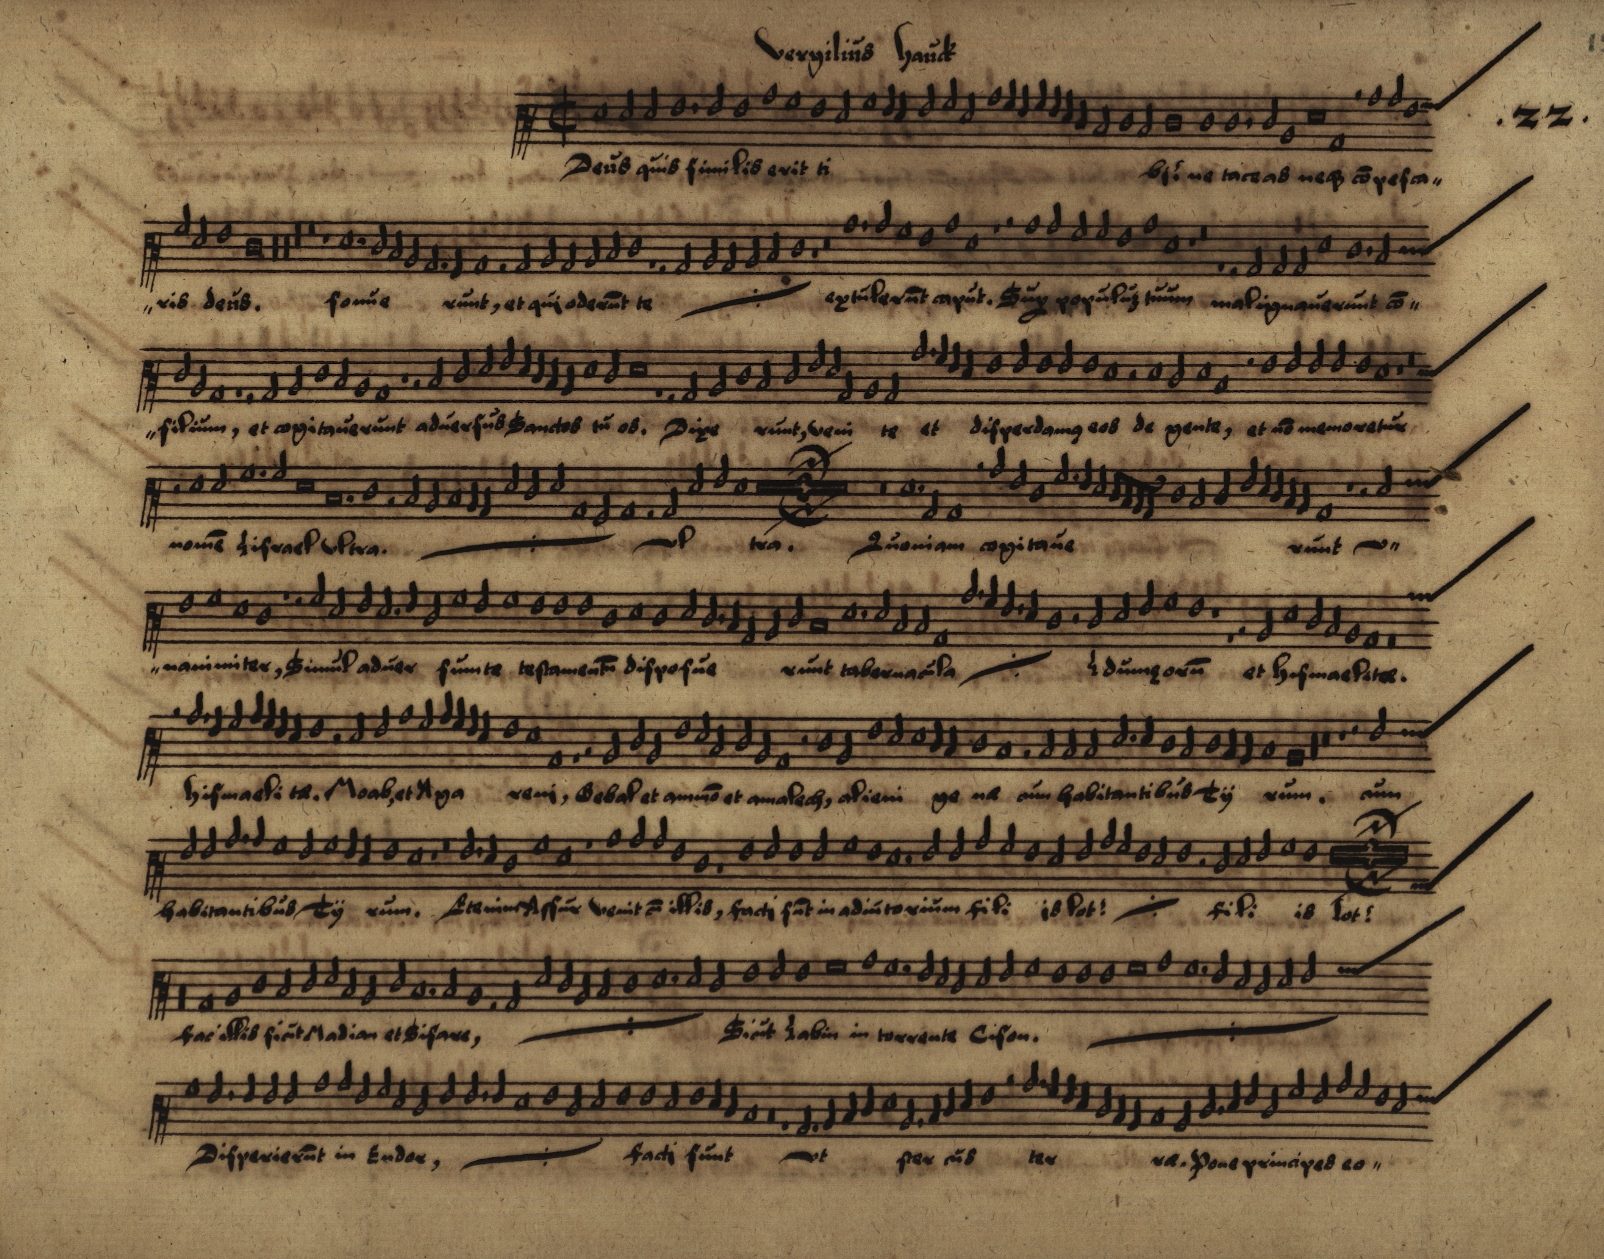 Vergilius Hauck
.22.
Deus quis similis erit ti bsi ne taceas neqꝫ cōpesca„
„ris deus. sonue runt, et qui oderūt te extulerūt caput. Sup populuꝫ tuum malignauerunt cō„
„silium, et cogitauerunt aduersus Sanctos tu os. Dixe runt, veni te et disperdamꝰ eos de gente, et nō memoretur
nomē Iisrael vltra. vl tra. Quoniam cogitaue runt v„
„nanimiter, Simul aduer sum te testamentū disposue runt tabernacula Idumeorū et hismaelitæ.
hismaeli tæ. Moab, et Aga reni, Gebal et ammō et amalech, alieni ge næ cum habitantibus Tÿ rum. cum
habitantibus Tÿ rum. Etenim Assur venit cū illis, facti sūt in adiutorium fili is lot! fili is lot!
fac illis sicut Madian et Sisare, Sicut Iabin in torrente Cison.
Disperierūt in Endor, facti sunt vt ster cus ter ræ. Pone principes eo„